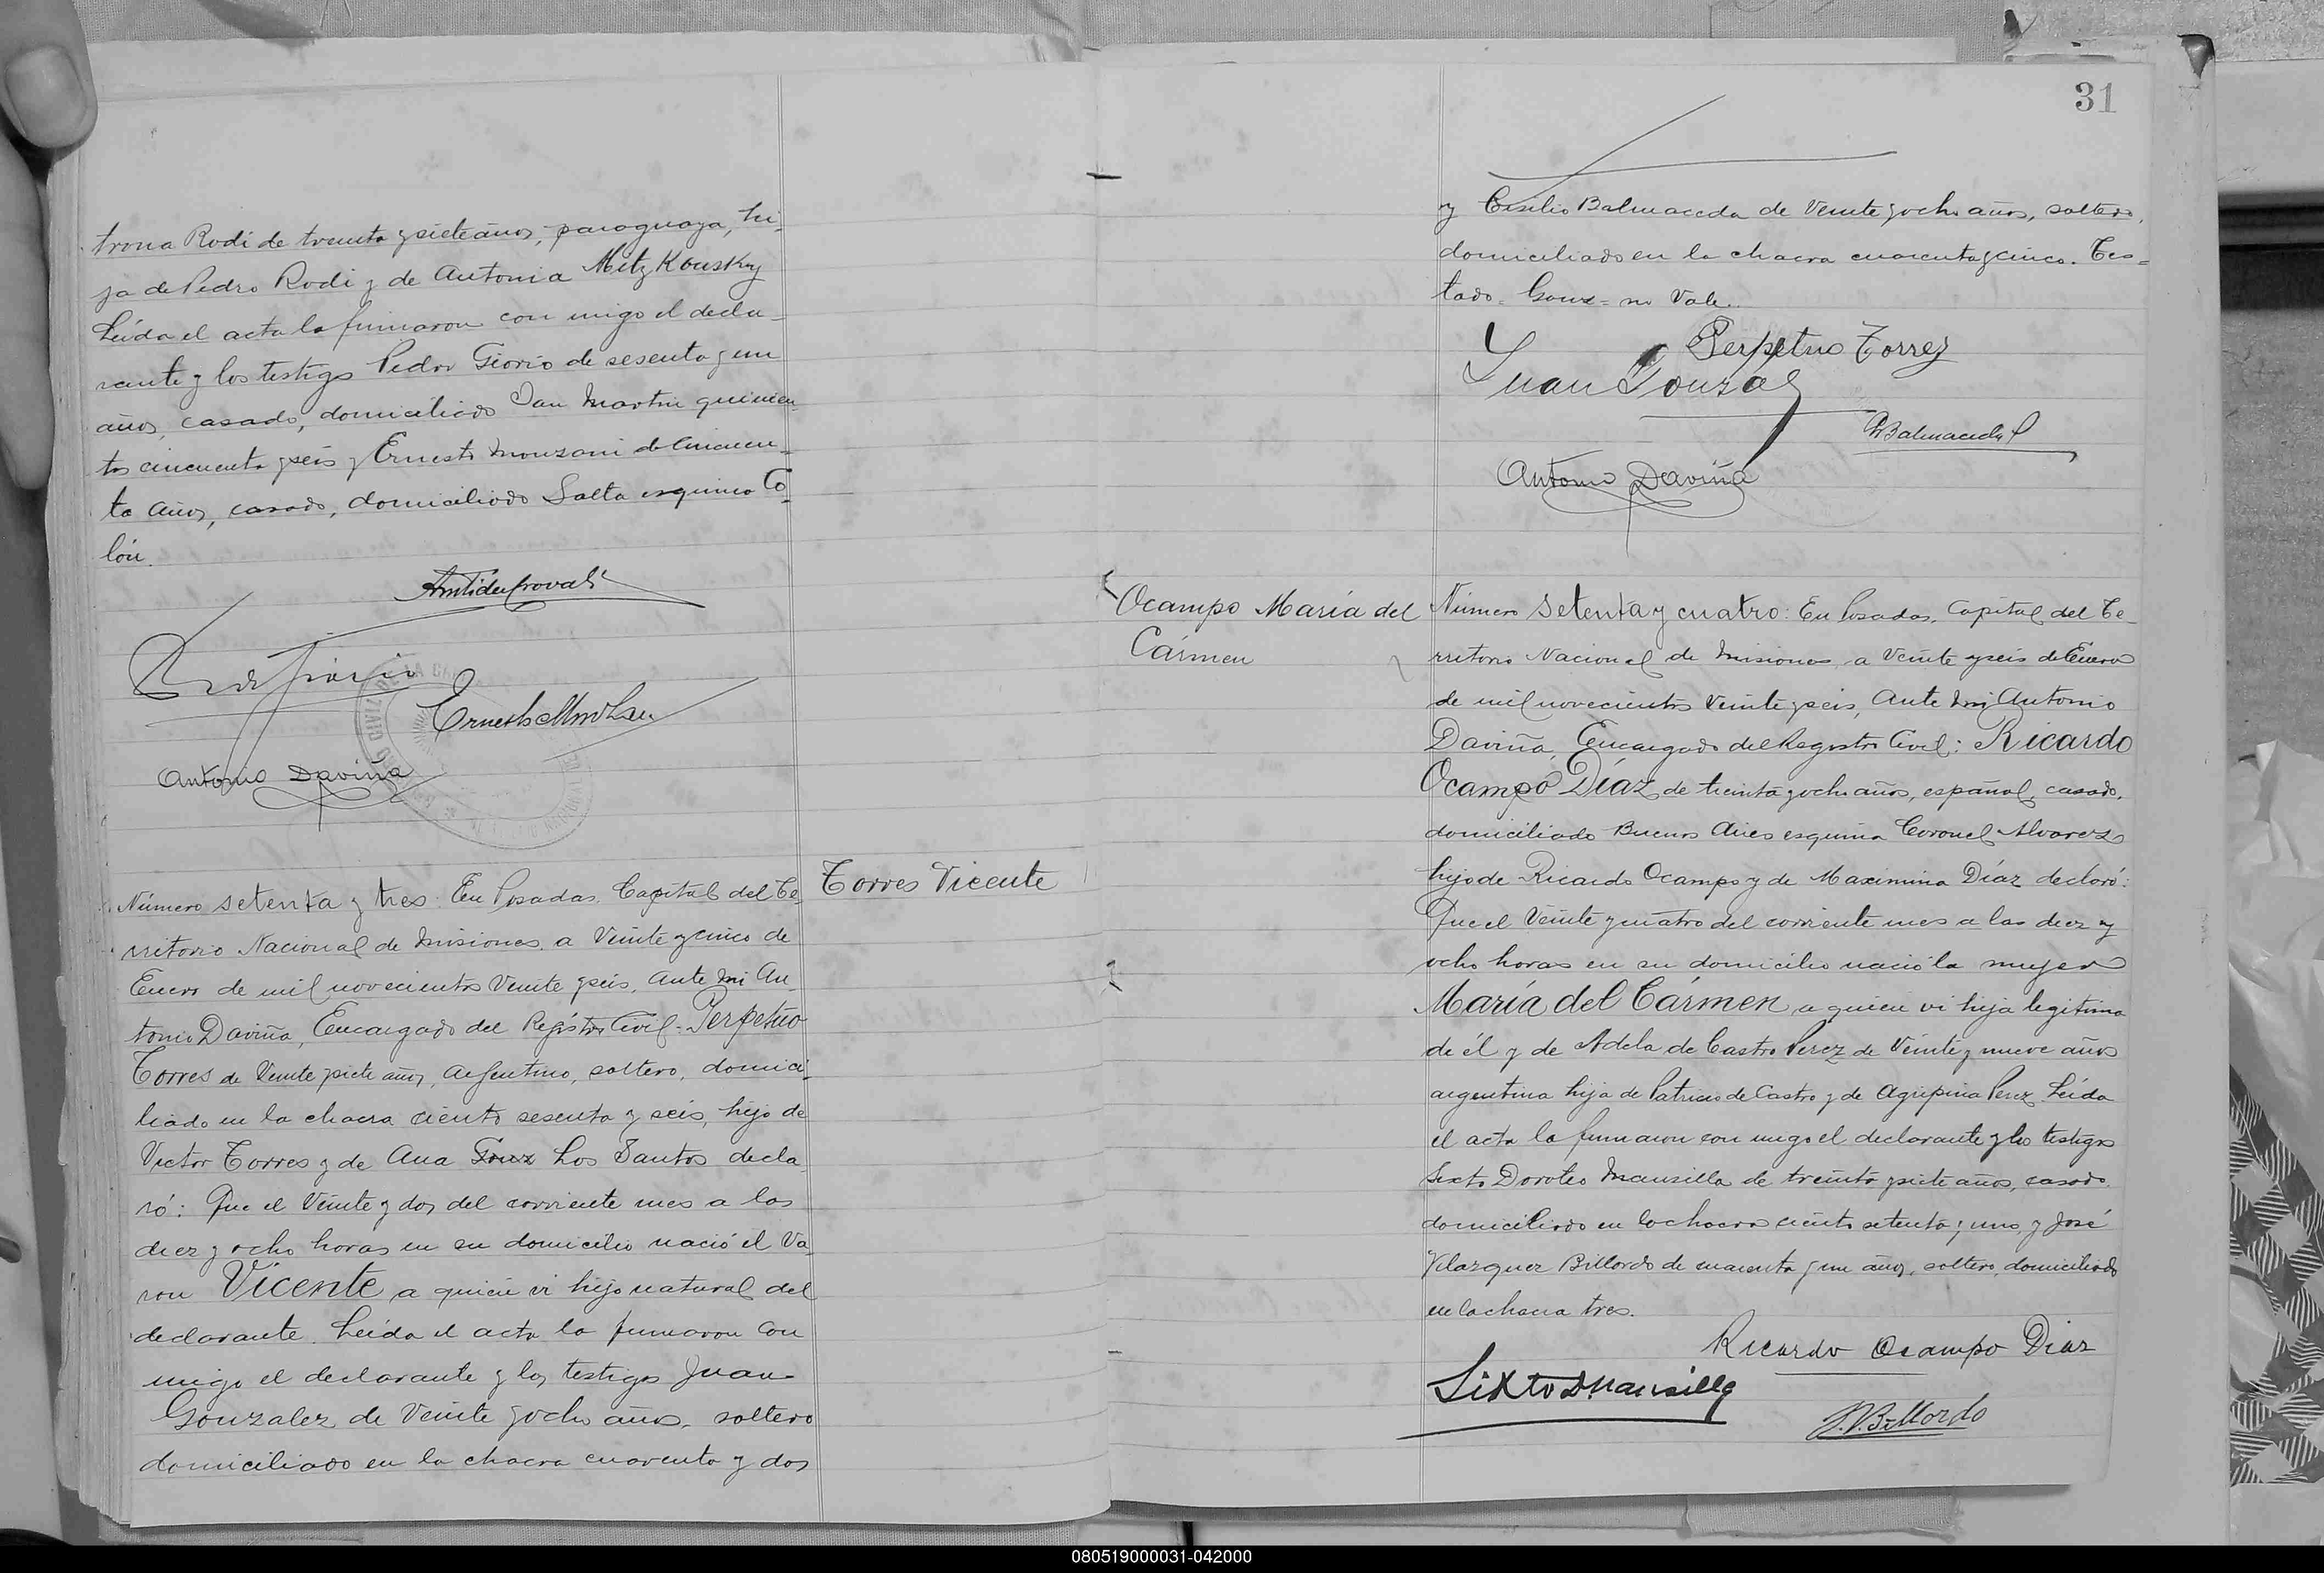 trona Rodi de treinta y siete años, paraguaya, hi-
ja de Pedro Rodi y de Antonia Mitzkousky
Leída el acta la firmaron con migo el decla-
rante y los testigos Pedro Giorio de sesenta y un
años, casado, domiciliado San Martin quinien-
tos cincuenta y seis y Ernesto Monzani de cincuen-
ta años, casado, domiciliado Salta esquina Co-
lón.
Ernesto
Antonio Daviña
Torres Vicente
Número setenta y tres: En Posadas, Capital del Te-
rritorio Nacional de Misiones, a Veinte y cinco de
Enero de mil novecientos Veinte y seis, Ante mi An-
tonio Daviña, Encargado del Registro Civil: Perpetuo
Torres de Veinte y siete años, argentino, soltero, domici-
liado en la chacra ciento sesenta y seis, hijo de
Victor Torres y de Ana Los Santos decla-
ró: Que el Veinte y dos del corriente mes a las
diez y ocho horas en su domicilio nació el Va-
ron Vicente a quien vi hijo natural del
declarante. Leída el acta la firmaron con
migo el declarante y los testigos Juan
Gonzalez de Veinte y ocho años, soltero
domiciliado en la chacra cuarenta y dos
31
y Balmaceda de Veinte y ocho años, soltero,
domiciliado en la chacra cuarenta y cinco. Tes-
tado = = no Vale.
Perpetuo Torrez
Juan Gonzal
Balmaceda
Antonio Daviña
Ocampo María del
Cármen
Número setenta y cuatro: En Posadas, Capital del Te-
rritorio Nacional de Misiones, a Veinte y seis de Enero
de mil novecientos Veinte y seis, Ante mi Antonio
Daviña, Encargado del Registro Civil: Ricardo
Ocampo Díaz de treinta y ocho años, español, casado,
domiciliado Buenos Aires esquina Coronel Alvarez
hijo de Ricardo Ocampo y de Maximina Díaz declaró:
Que el Veinte y cuatro del corriente mes a las diez y
ocho horas en su domicilio nació la mujer
María del Cármen a quien vi hija legitima
de él y de Adela de Castro Perez de Veinte y nueve años
argentina hija de Patricio de Castro y de Agripina Perez. Leída
el acta la firmaron con migo el declarante y los testigos
Sixto Doroteo Mansilla de treinta y siete años, casado,
domiciliado en la chacra ciento setenta y uno, y José
Velazquez Billordo de cuarenta y un años, soltero, domiciliado
en la chacra tres.
Ricardo Ocampo Diaz
Sixto D. Mansilla
J. V. Billordo
080519000031-042000